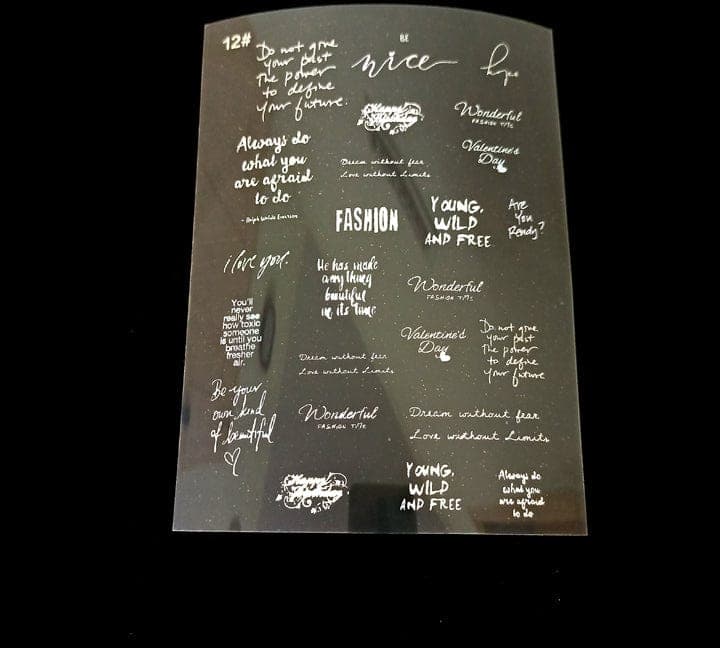 12#
Do not give
your past
the power
to define
your future.
BE
nice
hope
Happy
Birthday
Wonderful
FASHION TIME
Always do
what you
are afraid
to do
- Ralph Waldo Emerson
Dream without fear
Love without Limits
Valentine's
Day
FASHION
YOUNG,
WILD
AND FREE
Are
You
Ready?
i love you.
He has made
anything
beautiful
in its time
Wonderful
FASHION TIME
You'll
never
really see
how toxic
someone
is until you
breathe
fresher
air.
Dream without fear
Love without Limits
Valentine's
Day
Do not give
your past
the power
to define
your future
Be your
own kind
of beautiful
Wonderful
FASHION TIME
Dream without fear
Love without Limits
Happy
Birthday
YOUNG,
WILD
AND FREE
Always do
what you
are afraid
to do